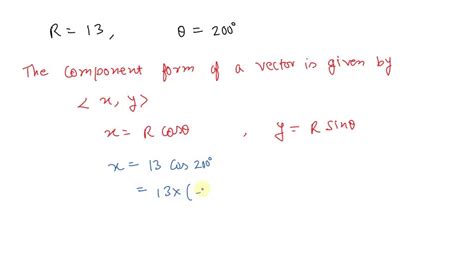 R = 13, θ = 200°
The component form of a vector is given by
< x, y >
x = R cosθ , y = R sinθ
x = 13 cos 200°
= 13 × ( -